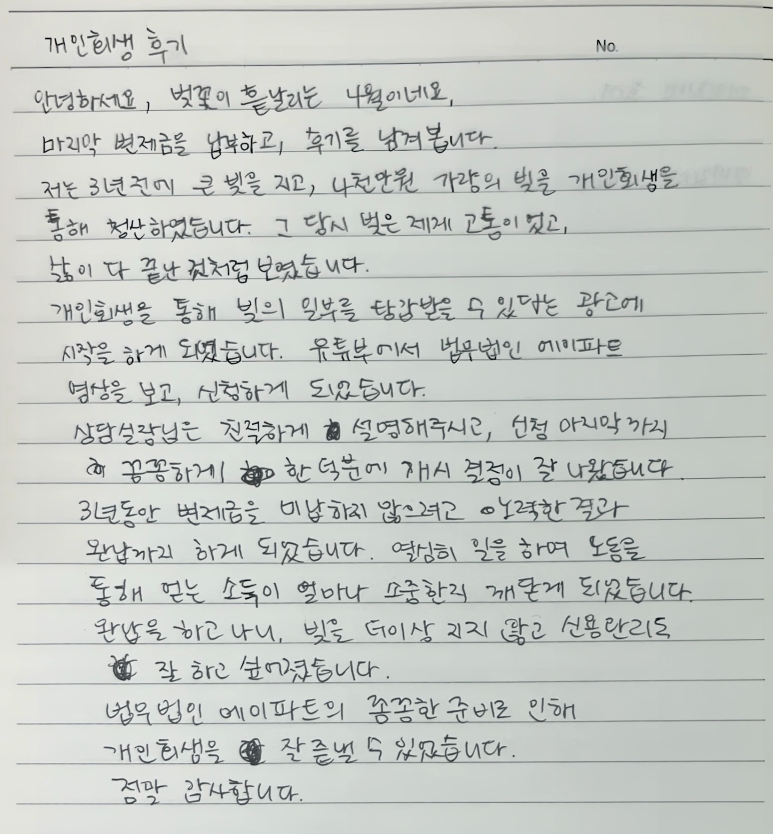 개인회생 후기
No.
안녕하세요, 벚꽃이 흩날리는 4월이네요,
마지막 변제금을 납부하고, 후기를 남겨봅니다.
저는 3년전에 큰 빚을 지고, 4천만원 가량의 빚을 개인회생을
통해 청산하였습니다. 그 당시 빚은 제게 고통이었고,
삶이 다 끝난 것처럼 보였습니다.
개인회생을 통해 빚의 일부를 탕감받을 수 있다는 광고에
시작을 하게 되었습니다. 유튜부에서 법무법인 에이파트
영상을 보고, 신청하게 되었습니다.
상담실장님은 친절하게 설명해주시고, 신청 마지막까지
꼼꼼하게 한 덕분에 개시 결정이 잘 나왔습니다.
3년동안 변제금을 미납하지 않으려고 노력한 결과
완납까지 하게 되었습니다. 열심히 일을 하며 노동을
통해 얻는 소득이 얼마나 소중한지 깨닫게 되었습니다.
완납을 하고 나니, 빚을 더이상 지지 않고 신용관리도
잘 하고 싶어졌습니다.
법무법인 에이파트의 꼼꼼한 준비로 인해
개인회생을 잘 끝낼 수 있었습니다.
정말 감사합니다.